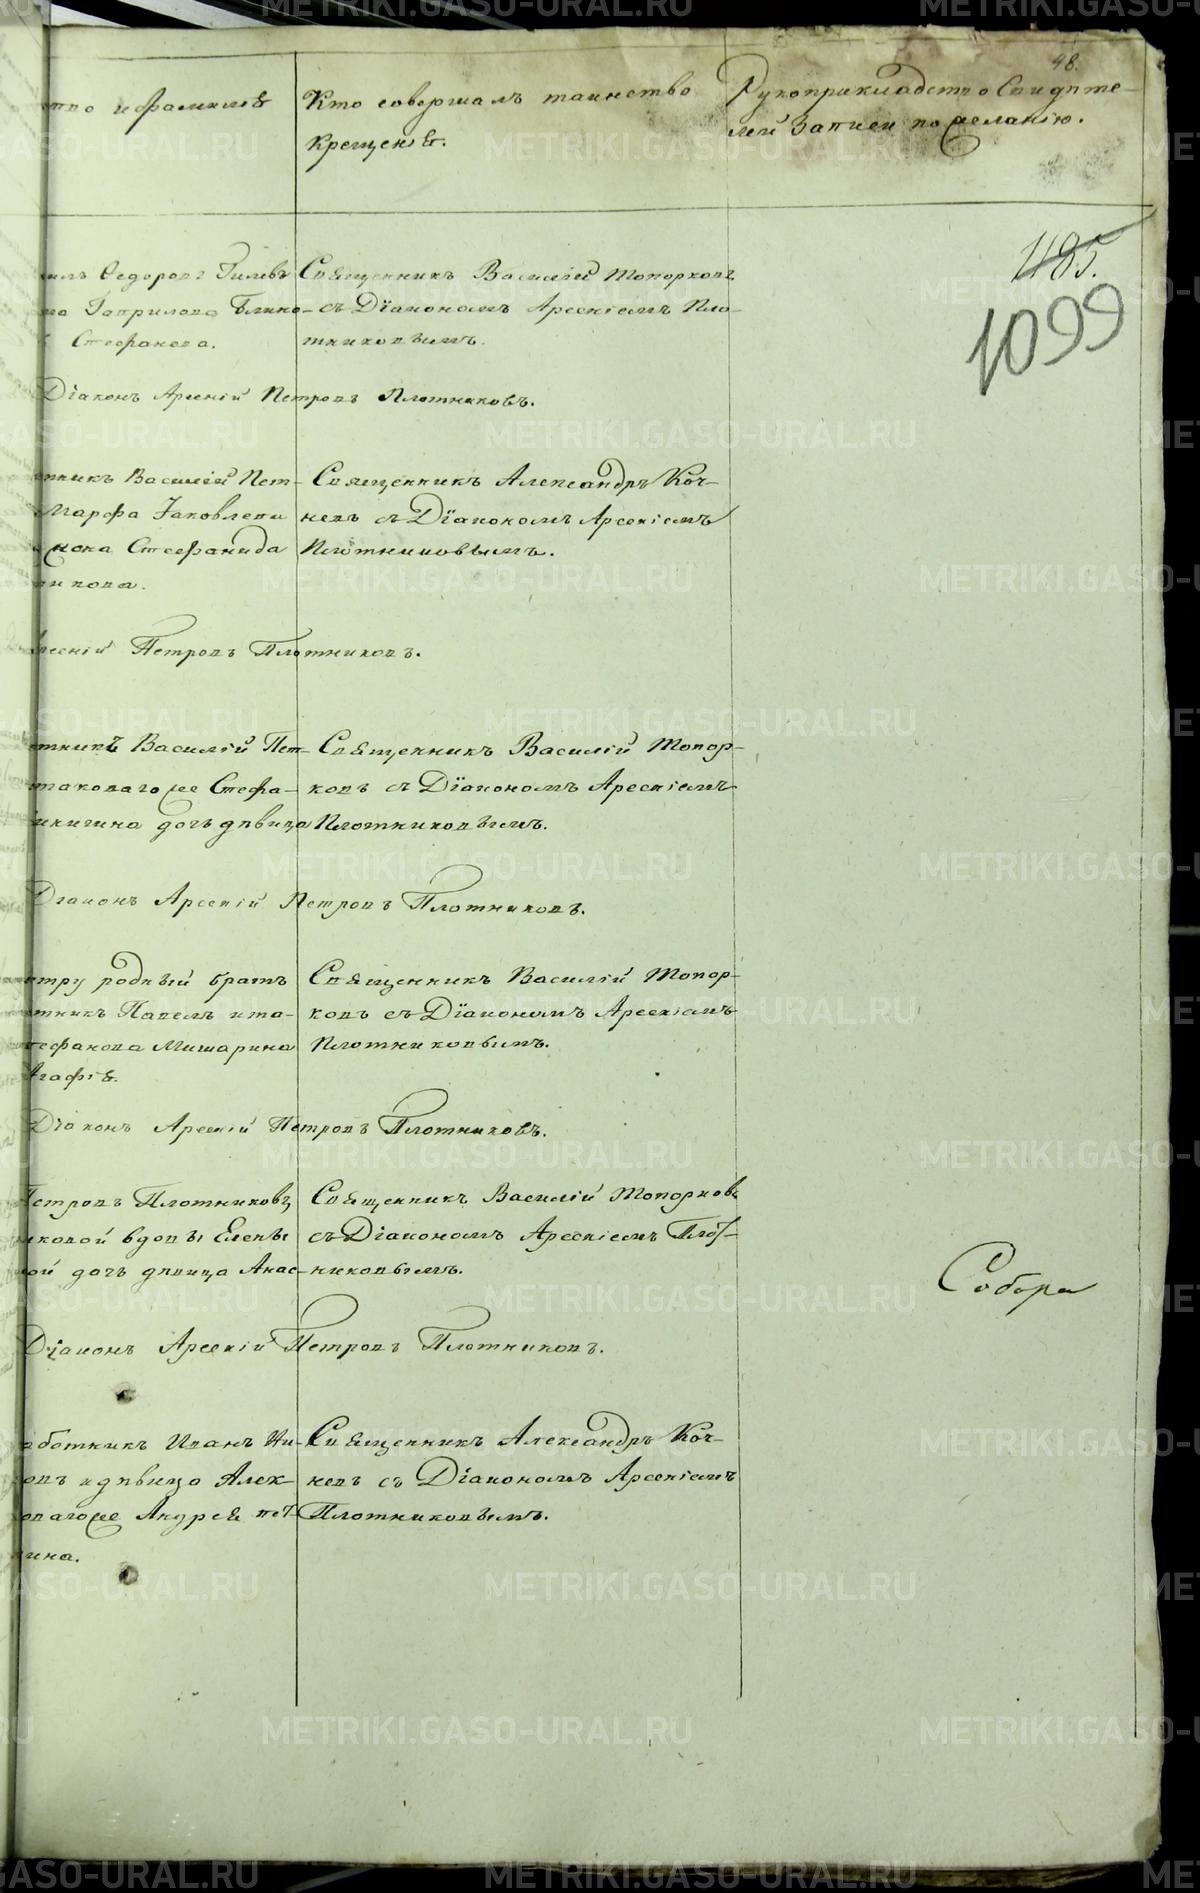 48.
ство и фамилія
Кто совершалъ таинство
крещенія.
Рукоприкладство Свидѣте-
лей записи по желанію.
1185.
1099
илъ Ѳедоровъ Гилевъ
на Гаврилова Блино-
Стефанова.
Священникъ Василій Топорковъ
съ Діакономъ Арсеніемъ Пло-
тниковымъ.
Діаконъ Арсеній Петровъ Плотниковъ.
тникъ Василій Пет-
Марфа Іаковлева
жена Стефанида
никова.
Священникъ Александръ Коч-
невъ съ Діакономъ Арсеніемъ
Плотниковымъ.
рсеній Петровъ Плотниковъ.
тникъ Василій Пет-
таковагоже Стефа-
икитина дочь дѣвица
Священникъ Василій Топор-
ковъ съ Діакономъ Арсеніемъ
Плотниковымъ.
Діаконъ Арсеній Петровъ Плотниковъ.
тру родный братъ
тникъ Павелъ и та-
тефанова Мишарина
Агафія.
Священникъ Василій Топор-
ковъ съ Діакономъ Арсеніемъ
Плотниковымъ.
Діаконъ Арсеній Петровъ Плотниковъ.
Петровъ Плотниковъ
иковой вдовы Елены
ой дочь дѣвица Анас-
Священникъ Василій Топорковъ
съ Діакономъ Арсеніемъ Плот-
никовымъ.
Собора
Діаконъ Арсеній Петровъ Плотниковъ.
аботникъ Иванъ Ни-
овъ и дѣвица Алек-
овагоже Андрея пет-
ина.
Священникъ Александръ Коч-
невъ съ Діакономъ Арсеніемъ
Плотниковымъ.
METRIKI.GASO-URAL.RU